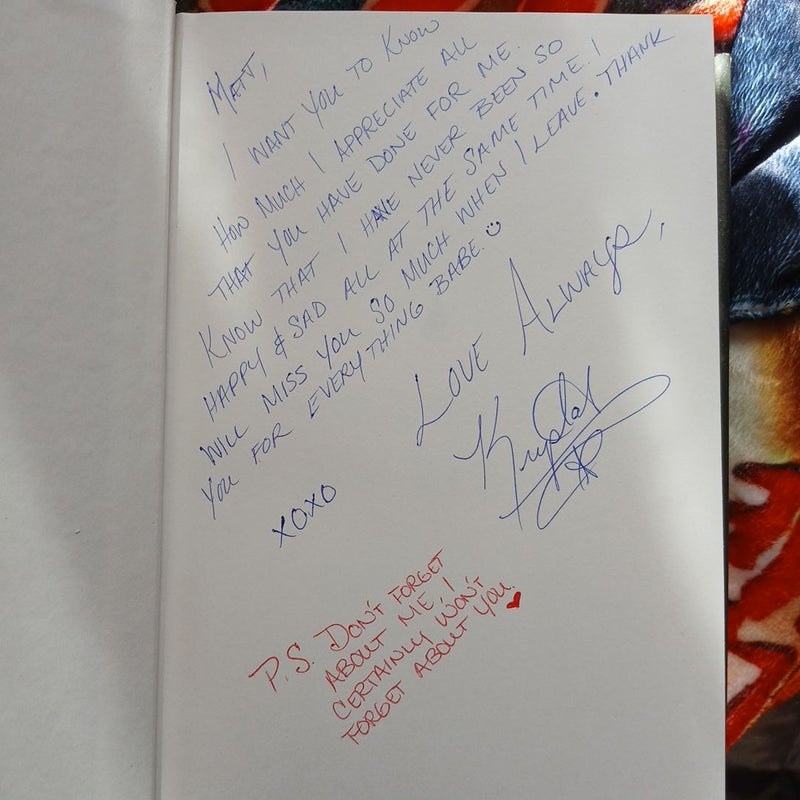 MATT,
I WANT YOU TO KNOW
HOW MUCH I APPRECIATE ALL
THAT YOU HAVE DONE FOR ME.
KNOW THAT I HAVE NEVER BEEN SO
HAPPY & SAD ALL AT THE SAME TIME. I
WILL MISS YOU SO MUCH WHEN I LEAVE. THANK
YOU FOR EVERYTHING BABE. ☺
LOVE ALWAYS,
Krystal
XOXO
P.S. DON'T FORGET
ABOUT ME, I
CERTAINLY WON'T
FORGET ABOUT YOU. ♥